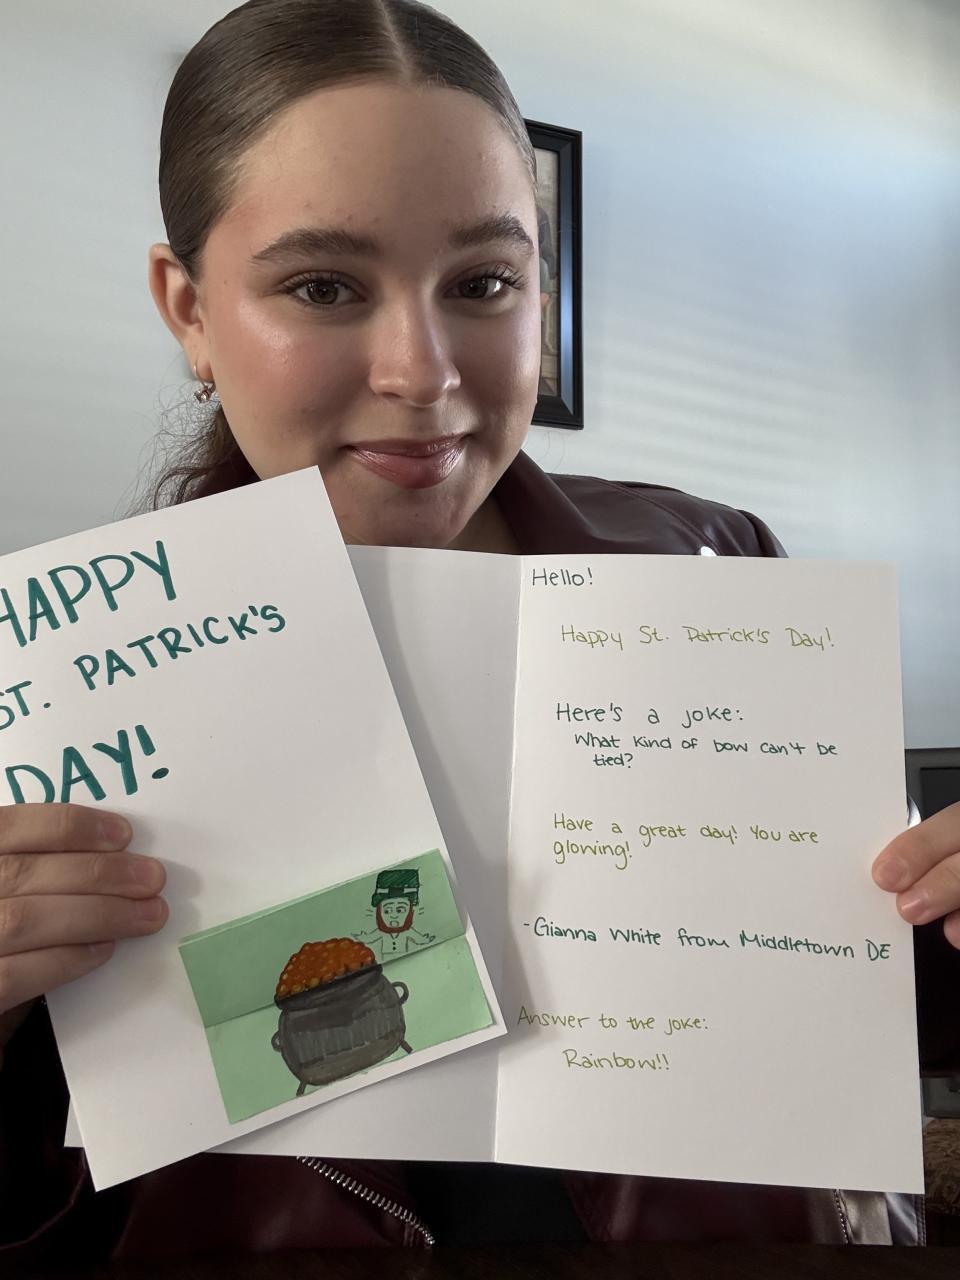 HAPPY
ST. PATRICK'S
DAY!
Hello!
Happy St. Patrick's Day!
Here's a joke:
What kind of bow can't be
tied?
Have a great day! You are
glowing!
-Gianna White from Middletown DE
Answer to the joke:
Rainbow!!